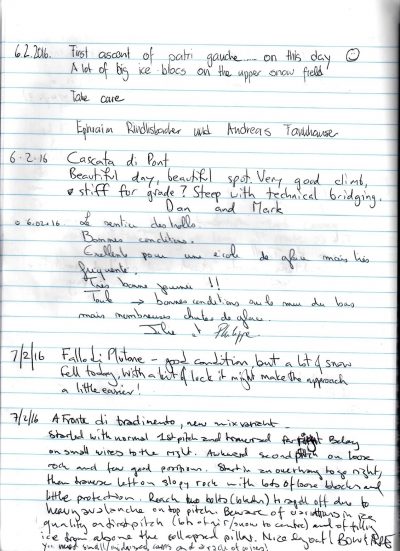 6.2.2016. First ascent of patri gauche ... on this day ☺
A lot of big ice blocs on the upper snow field
Take care
Ephraim und Andreas
6.2.16 Cascata di Pont
Beautiful day, beautiful spot. Very good climb,
stiff for grade? Steep with technical bridging.
Dan and Mark
6.02.16 Le sentier des trolls.
Bonnes conditions.
Excellente pour une école de glace mais très
fréquenté.
Très bonne journée !!
Toule → bonnes conditions sur le mur du bas
mais nombreuses chutes de glace.
Julie et Philippe.
7/2/16 Fallo di Plutone - good condition, but a lot of snow
fell today. With a bit of luck it might make the approach
a little easier!
7/2/16 A Fronte di tradimento, new mix variant.
Started with normal 1st pitch and traversed far right. Belay
on small wires to the right. Awkward second pitch on loose
rock and few good positions. Start in a overhang to go right,
then traverse left on slopy rock with lots of loose blocks and
little protection. Reach two bolts to rapell off due to
heavy avalanche on top pitch. Beware of variations in ice
quality on first pitch (to centre) and of falling
ice from above the collapsed pillar. Nice layout!
you must small